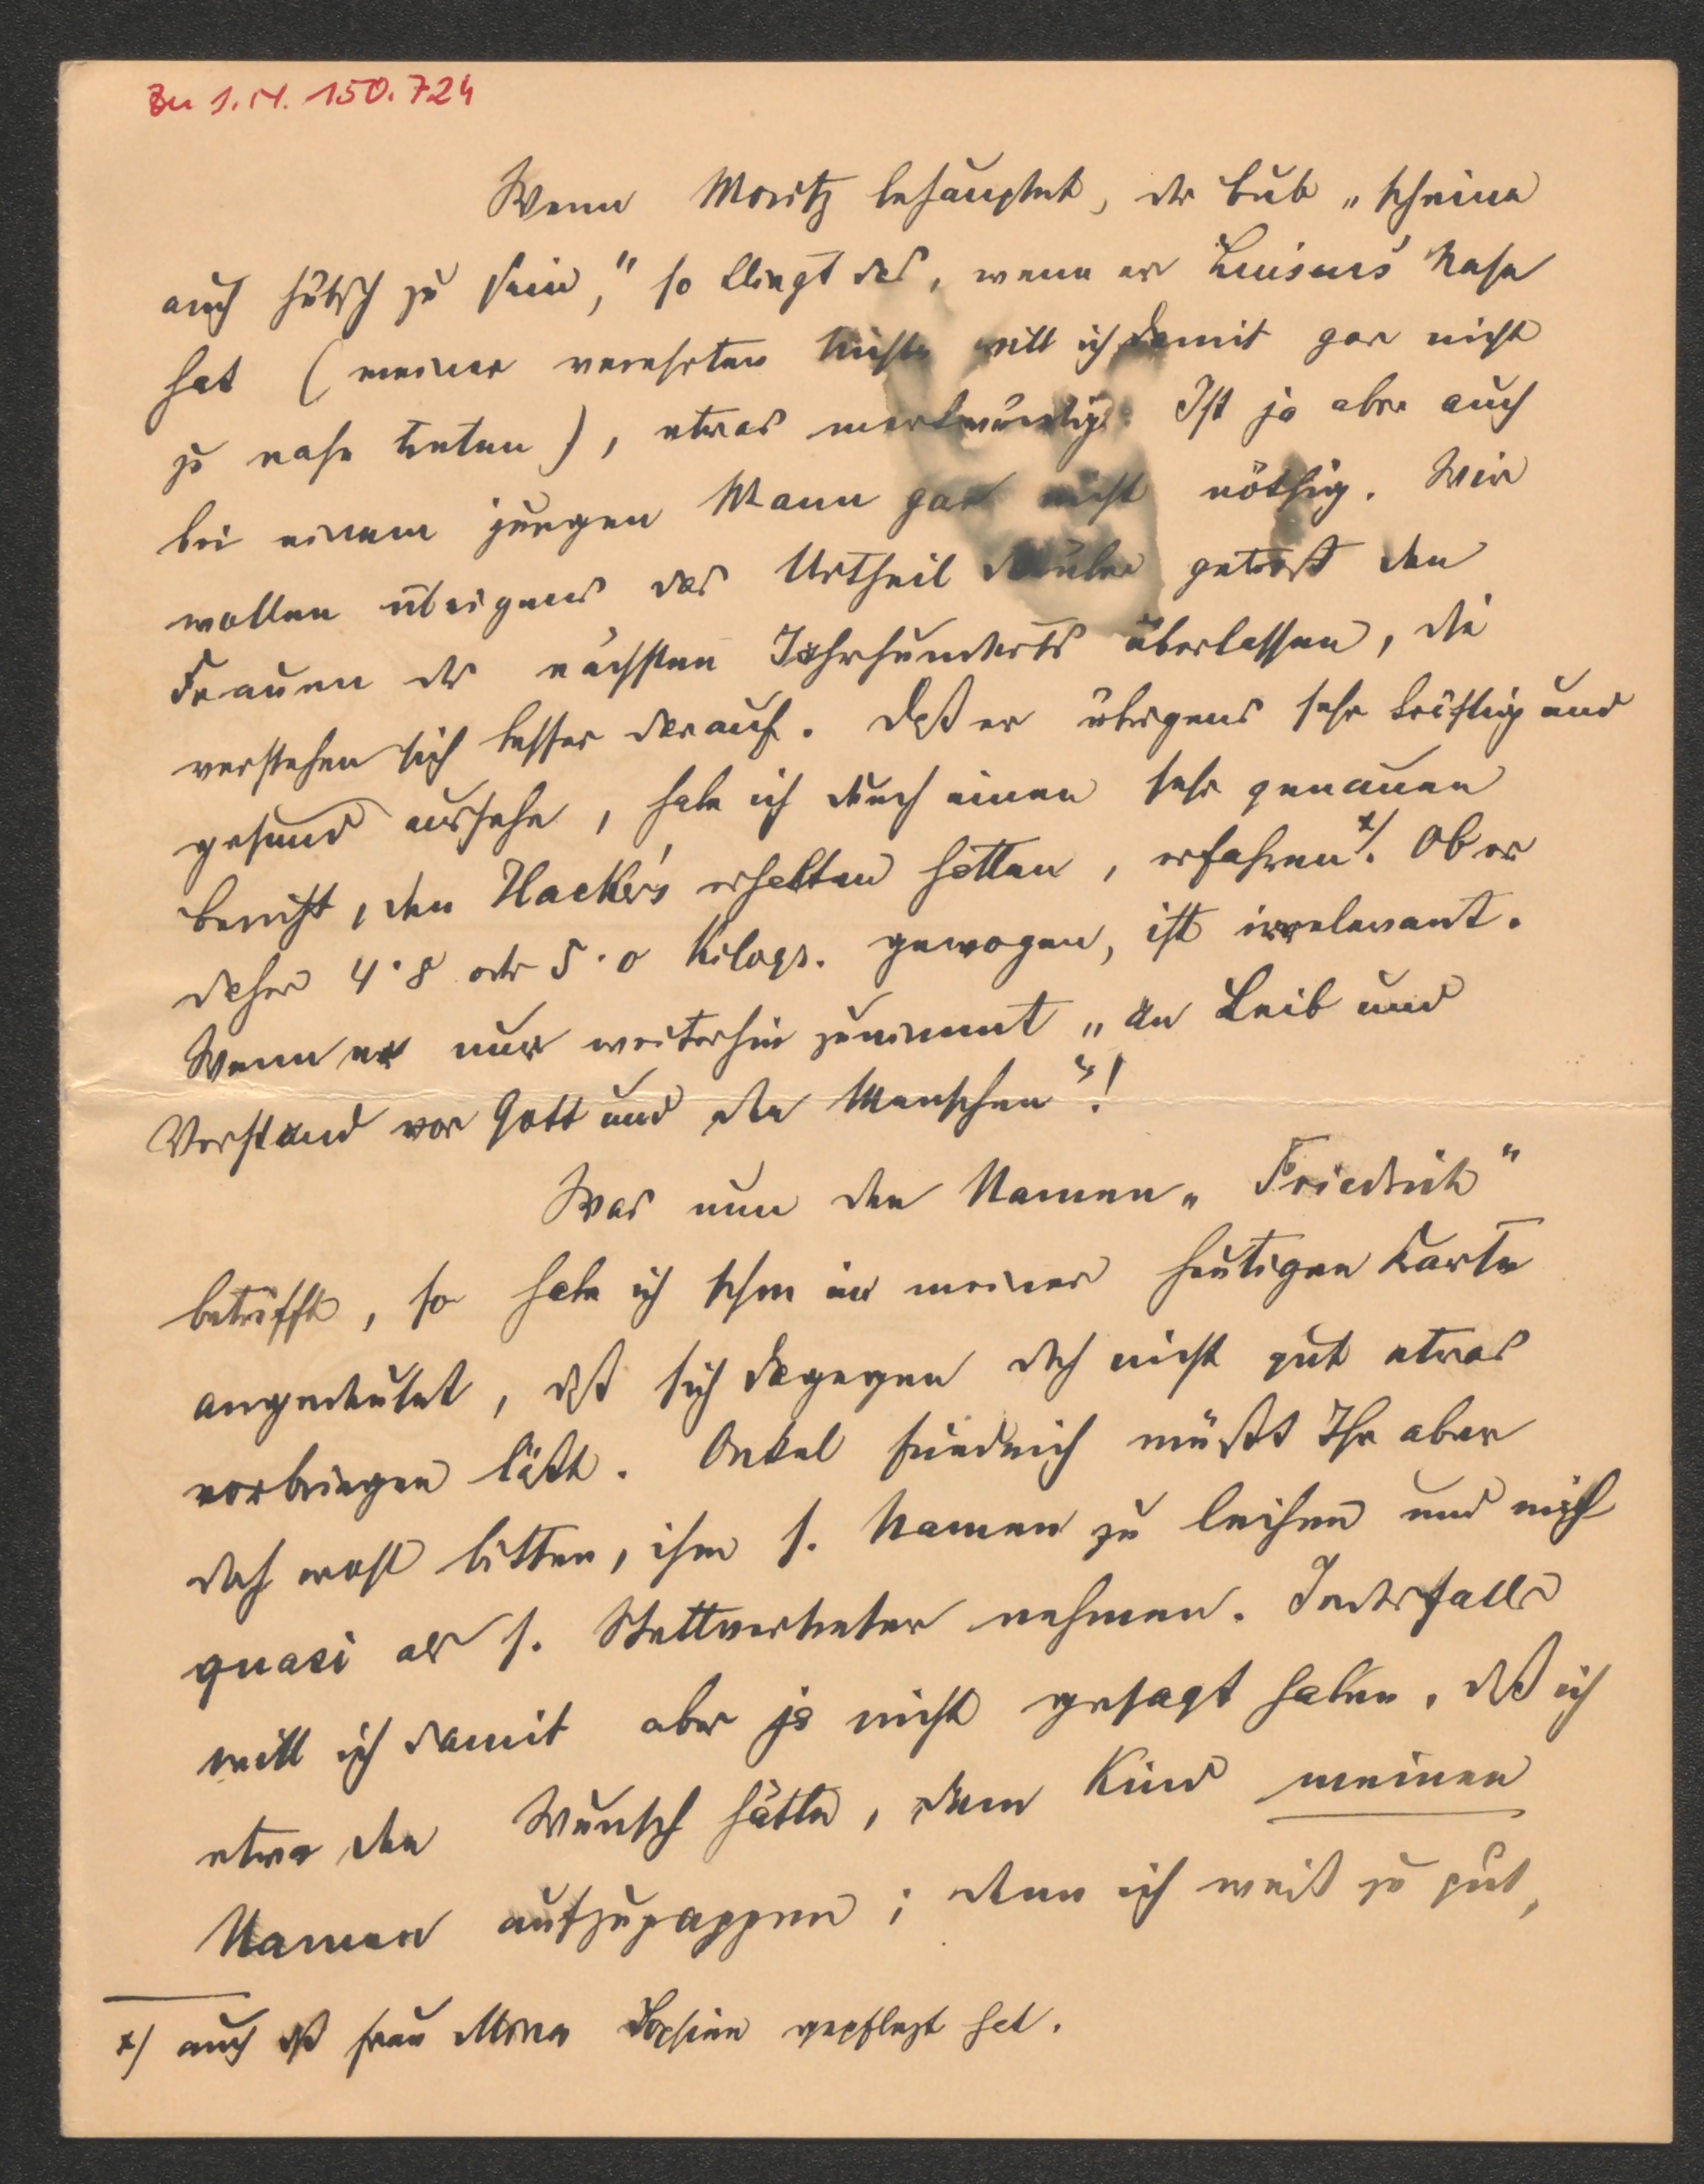 Zu I.N. 150.724
Wenn Moritz behauptet, der Bub „scheine
auch hübsch zu sein," so klingt das, wenn er Luisens Nase
hat (meiner verehrten Nichte will ich damit gar nicht
zu nahe treten), etwas merkwürdig. Ist ja aber auch
bei einem jungen Mann gar nicht nöthig. Wir
wollen übrigens das Urtheil darüber getrost den
Frauen des nächsten Jahrhunderts überlassen, die
verstehen sich besser darauf. Daß er übrigens sehr kräftig und
gesund aussehe, habe ich durch einen sehr genauen
Bericht, den Hacker's erhalten hatten, erfahren*). Ob er
daher 4·8 oder 5·0 Kilogr. gewogen, ist irrelevant.
Wenn er nur weiterhin zunimmt „an Leib und
Verstand vor Gott und den Menschen"!
Was nun den Namen „Friedrich"
betrifft, so habe ich schon in meiner heutigen Karte
angedeutet, daß sich dagegen doch nicht gut etwas
vorbringen läßt. Onkel Friedrich müßt Ihr aber
doch wohl bitten, ihm s. Namen zu leihen und mich
quasi als s. Stellvertreter nehmen. Jedesfalls
will ich damit aber ja nicht gesagt haben, daß ich
etwa den Wunsch hätte, dem Kind meinen
Namen aufzupappen; denn ich weiß zu gut,
*) auch daß Frau gepflegt hat.